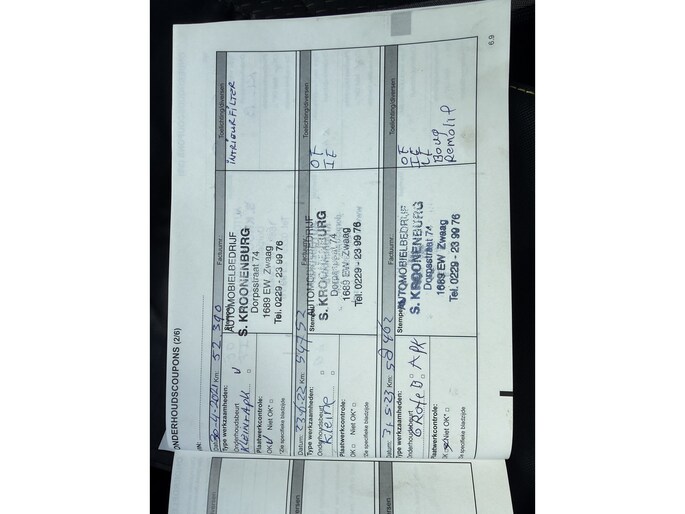 ONDERHOUDSCOUPONS (2/6)
VIN:
Datum: 30-4-2021 Km: 52.390 Factuurnr.: Toelichting/diversen
Type werkzaamheden: Stempel
Onderhoudsbeurt
Klein + APK
AUTOMOBIELBEDRIJF
S. KROONENBURG
Dorpsstraat 74
1689 EW Zwaag
Tel. 0229 - 23 99 76
INTRIEURFILTER
Plaatwerkcontrole:
OK Niet OK*
*Zie specifieke bladzijde
Datum: Km: 54752 Factuurnr.: Toelichting/diversen
Type werkzaamheden: Stempel
Onderhoudsbeurt
Kleine
AUTOMOBIELBEDRIJF
S. KROONENBURG
Dorpsstraat 74
1689 EW Zwaag
Tel. 0229 - 23 99 76
OF
IF
Plaatwerkcontrole:
OK Niet OK*
*Zie specifieke bladzijde
Datum: Km: Factuurnr.: Toelichting/diversen
Type werkzaamheden: Stempel
Onderhoudsbeurt
APK
AUTOMOBIELBEDRIJF
S. KROONENBURG
Dorpsstraat 74
1689 EW Zwaag
Tel. 0229 - 23 99 76
OF
IF
LF
Boug
Remolie
Plaatwerkcontrole:
OK Niet OK*
*Zie specifieke bladzijde
6.9